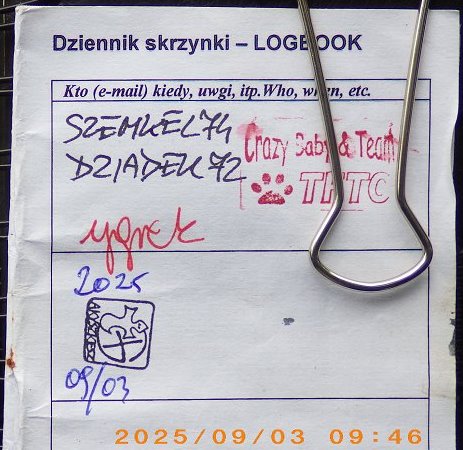 Dziennik skrzynki – LOGBOOK
Kto (e-mail) kiedy, uwgi, itp.Who, when, etc.
SZEMKEL74
DZIADEK72
Crazy Baby & Team
TFTC
ygrek
2025
09/03
2025/09/03 09:46